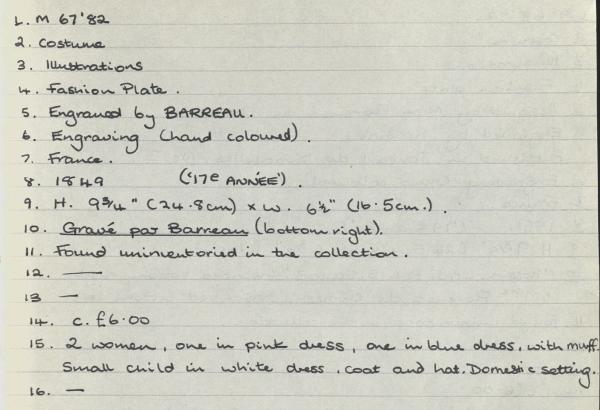 1. M 67'82
2. Costume
3. Illustrations
4. Fashion Plate.
5. Engraved by BARREAU.
6. Engraving (hand coloured).
7. France.
8. 1849 ('17e ANNÉE').
9. H. 9¾" (24.8cm) x w. 6½" (16.5cm.).
10. Gravé par Barreau (bottom right).
11. Found uninventoried in the collection.
12. —
13 —
14. c. £6.00
15. 2 women, one in pink dress, one in blue dress, with muff.
Small child in white dress, coat and hat. Domestic setting.
16. —